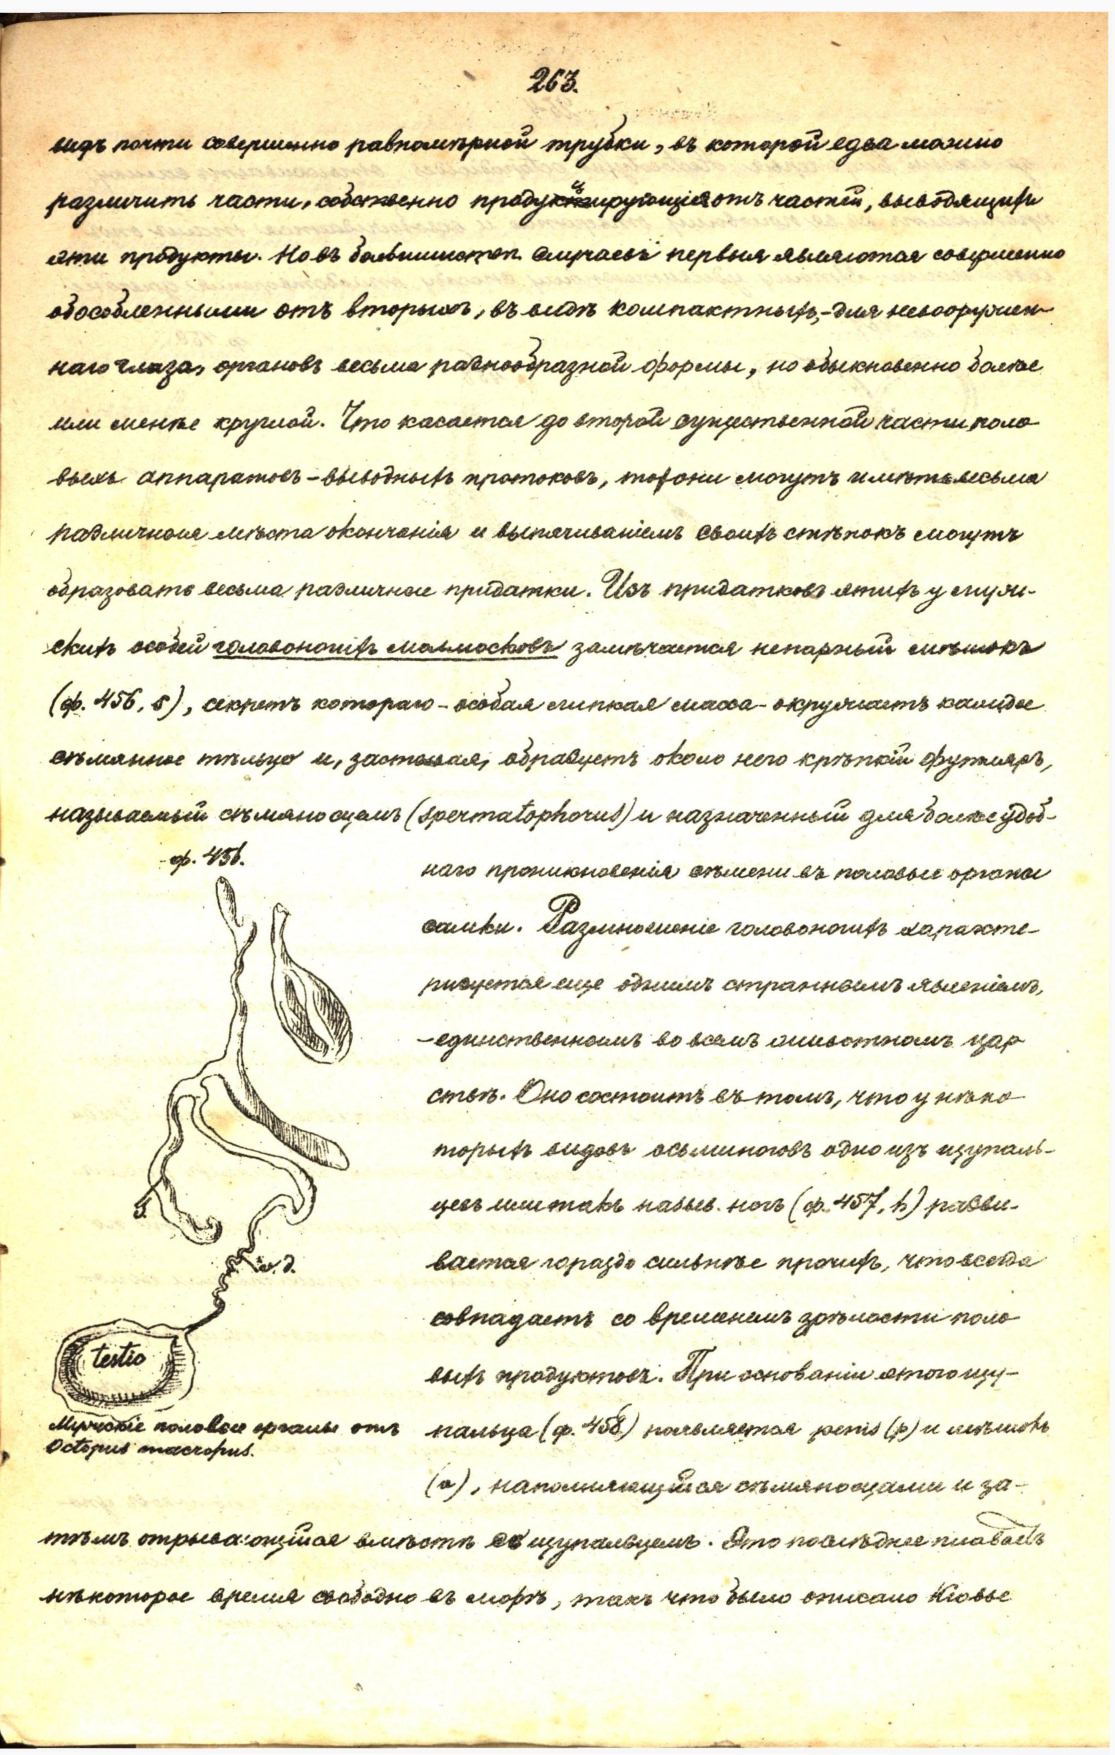 263.
видъ почти совершенно равномѣрной трубки, въ которой едва можно
различить части, собственно продуцирующія отъ частей, выводящихъ
эти продукты. Но въ большинствѣ случаевъ первыя являются совершенно
обособленными отъ вторыхъ, въ видѣ компактныхъ, - для невооружен-
наго глаза, органовъ весьма разнообразной формы, но обыкновенно болѣе
или менѣе круглой. Что касается до второй существенной части поло-
выхъ аппаратовъ - выводныхъ протоковъ, то они могутъ имѣть весьма
различныя мѣста окончанія и выпячиваніемъ своихъ стѣнокъ могутъ
образовать весьма различные придатки. Изъ придатковъ этихъ у муж-
скихъ особей головоногихъ моллюсковъ замѣчается непарный мѣшокъ
(ф. 456, s), секретъ котораго - особая липкая масса - окружаетъ каждое
сѣмянное тѣльце и, застывая, образуетъ около него крѣпкій футляръ,
называемый сѣмяносцемъ (spermatophorus) и назначенный для болѣе удоб-
ф. 456.
наго проникновенія сѣмени въ половые органы
самки. Размноженіе головоногихъ характе-
ризуется еще однимъ страннымъ явленіемъ,
- единственнымъ во всемъ животномъ цар
ствѣ. Оно состоитъ въ томъ, что у нѣко
торыхъ видовъ осьминоговъ одно изъ щупаль-
цевъ или такъ назыв. ногъ (ф. 457, h) разви-
вается гораздо сильнѣе прочихъ, что всегда
совпадаетъ со временемъ зрѣлости поло
выхъ продуктовъ. При основаніи этого щу-
пальца (ф. 458) появляется penis (p) и мѣшокъ
(a), наполняющійся сѣмяносцами и за-
s.
v. d.
testis
Мужскіе половые органы отъ
Octopus macropus.
тѣмъ отрывающійся вмѣстѣ съ щупальцемъ. Это послѣднее плаваетъ
нѣкоторое время свободно въ морѣ, такъ что было описано Кювье